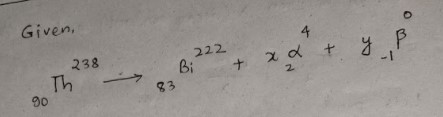 Given,
₉₀Th²³⁸ ⟶ ₈₃Bi²²² + x ₂α⁴ + y ₋₁β⁰